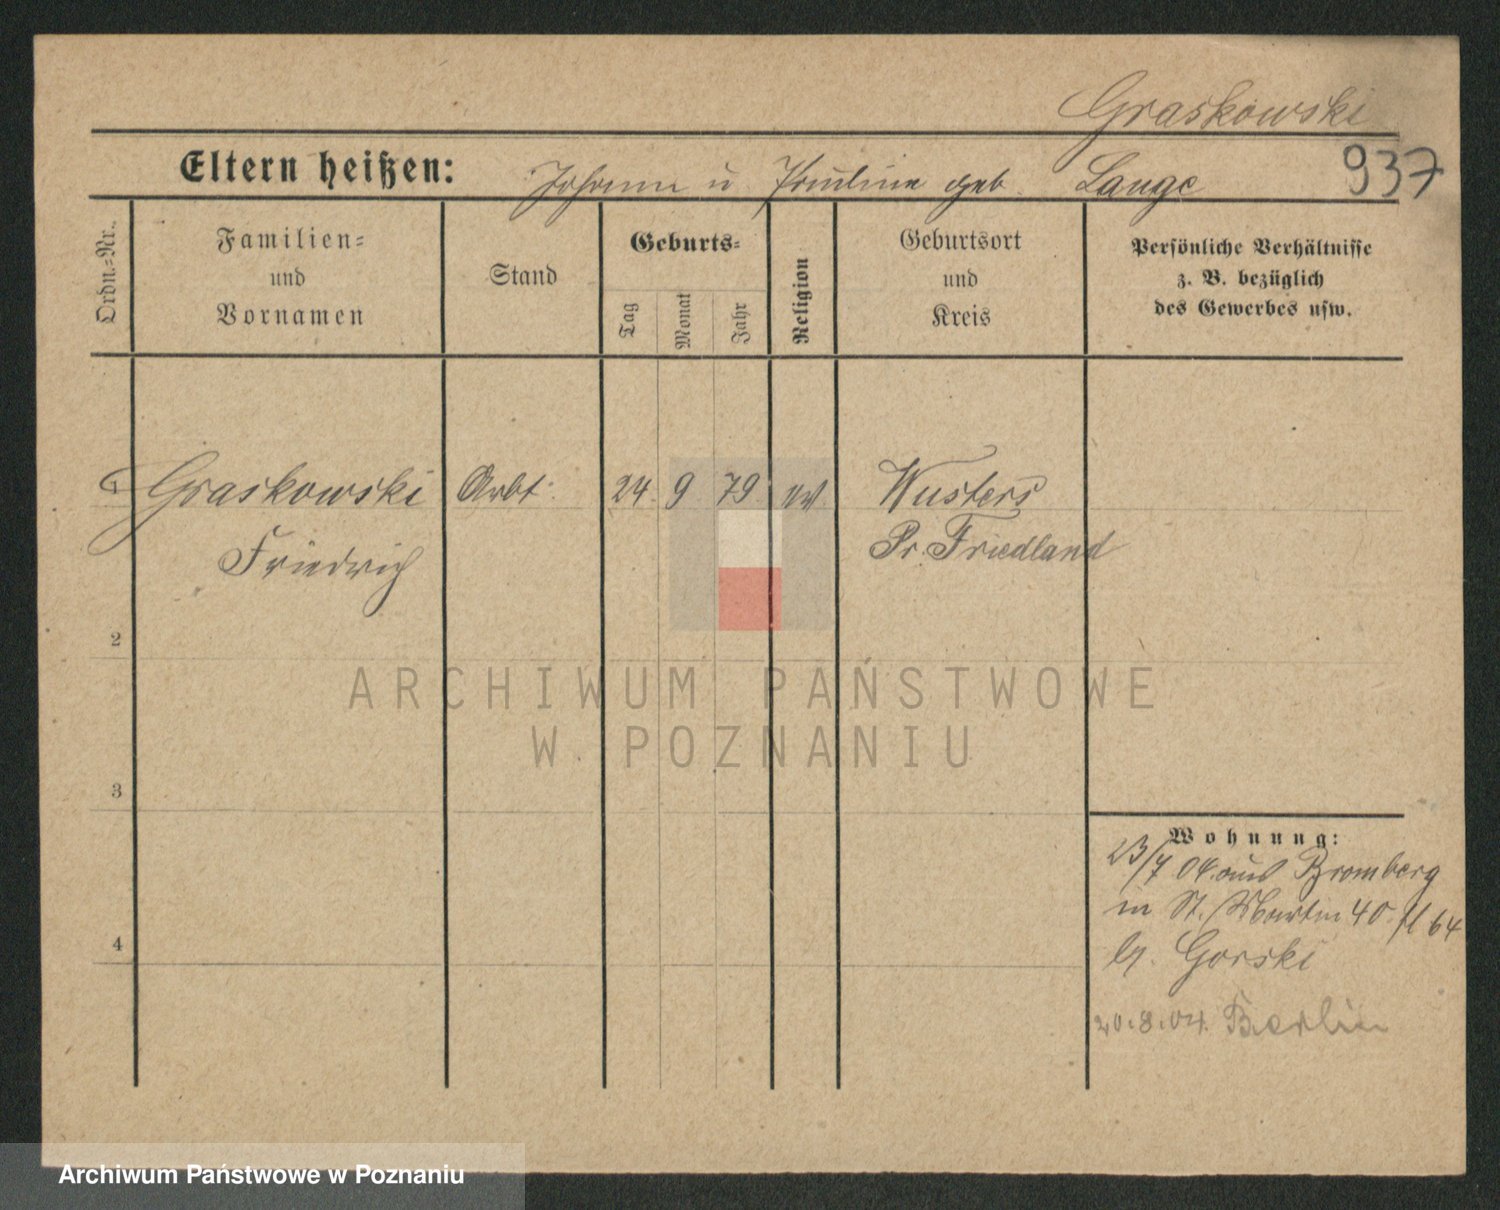 Graskowski
937
Eltern heißen: Johann u. Pauline geb. Lange
Ordn.-Nr.
Familien-
und
Vornamen
Stand
Geburts-
Tag
Monat
Jahr
Religion
Geburtsort
und
Kreis
Persönliche Verhältnisse
z. B. bezüglich
des Gewerbes usw.
1 Graskowski Arbt. 24. 9 79 ev. Wusters
Friedrich Pr. Friedland
2
ARCHIWUM PAŃSTWOWE
W POZNANIU
3
4
Wohnung:
23/7 04 aus Bromberg
in St. Martin 40 64
b. Gorski
20.8.04. Berlin
Archiwum Państwowe w Poznaniu